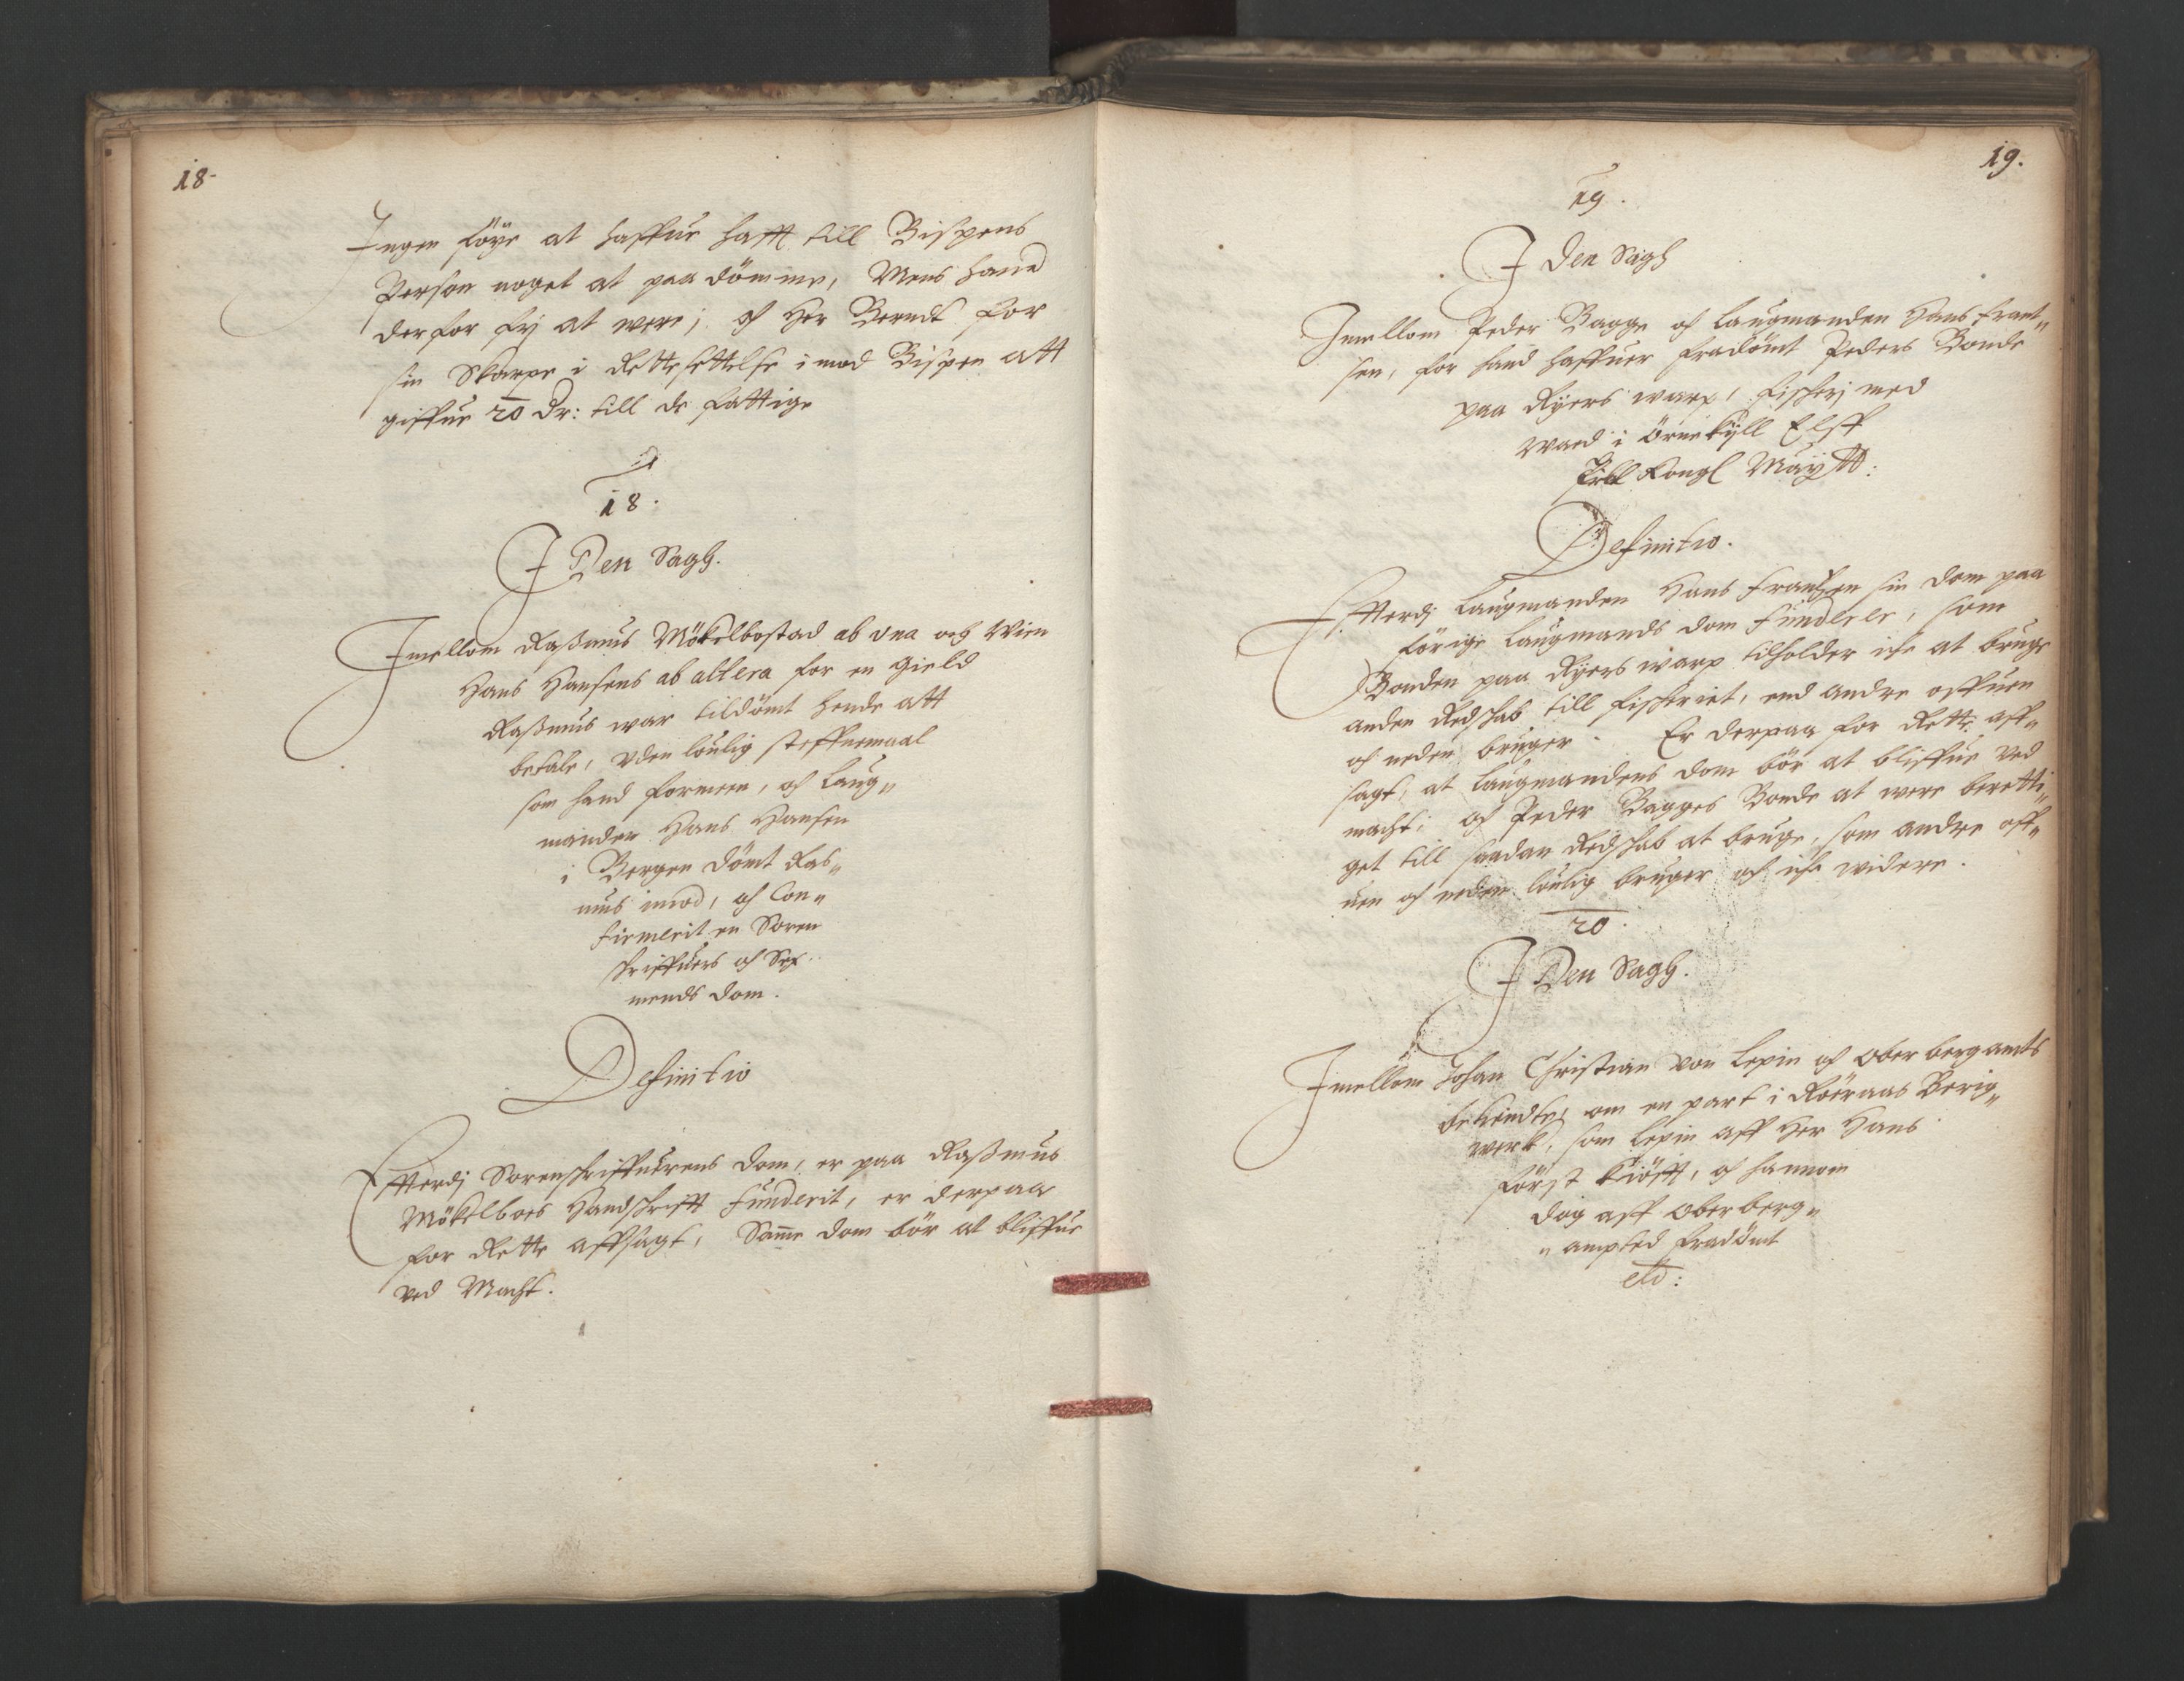 18.
Ingen föye at haffue hafft till Bispens
Person noget at paa dömme, Mens hand
derfor fri at were; och Her Berndt for
sin Skarpe i Rettesettelse imod Bispen att
giffue 20 Dr: till de fattige
18.
I Den Sagh.
Imellom Rasmus Mökelbostad ab una och Wien
Hans Hansens ab altera for en gield
Rasmus war tildömt hende att
betale, uden loulig steffnemaal
som hand formeen, och Laug„
manden Hans Hansen
i Bergen dömt Ras„
mus imod, och Con„
firmerit en Soren
schriffuers och Sex
mends dom.
Definitio
Efterdj Sorenschriffuerens dom, er paa Rasmus
Mökelboes Handschrifft funderit, er derpaa
for Rette affsagt, Samme dom bör at bliffue
ved Macht.
19.
19.
I Den Sagh
Imellom Peder Bagge och Laugmanden Hans Frant„
sen, for hand haffuer fradömt Peders Bonde
paa Ryers warp, fischerj med
waed i Örnekyll Elff
Till Kongl Maytt:
Definitio.
Efterdj Laugmanden Hans Frantzen sin dom paa
förige Laugmands dom funderer, som
Bonden paa Ryers warp tilholder iche at bruge
anden Redschab till fischeriet, end andre offuen
och neden bruger. Er derpaa for Rette aff„
sagt, at Laugmandens dom bör at bliffue ved
macht; och Peder Bagges Bonde at were beretti„
get till saadan Redschab at bruge, som andre off„
uen och neden loulig bruger och iche widere.
20.
I Den Sagh.
Imellom Johan Christian von Lepin och Oberbergamts
betiendte, om en part i Röeraas Berig„
werk, som Lepin aff Her Hans
först kiöfft, och hannom
dog aff Oberberg„
„ampted fradömt
etc: